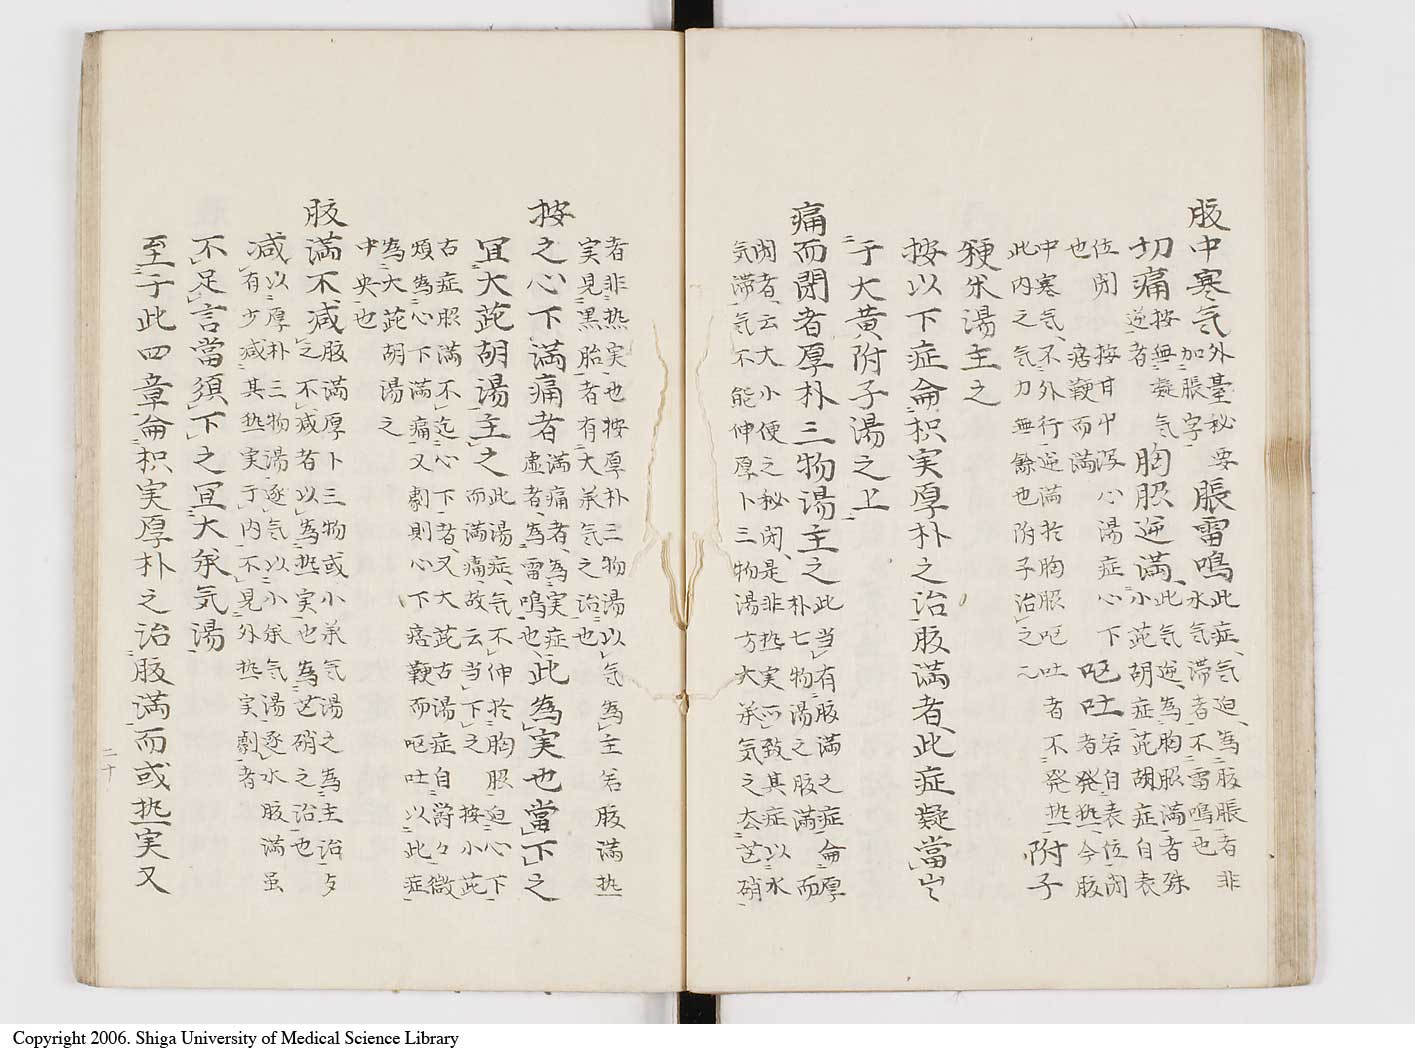 腹中寒気外臺秘要脹雷鳴此症気迫為腹脹者非
加脹字水気滞者不雷鳴也
切痛按無凝気胸脇逆満此気逆為胸脇満者殊
逆者小茈胡症茈胡症自表
位閉按甘中瀉心湯症心下嘔吐若自表位閉
也痞鞕而満者発熱今腹
中寒気不外行逆満於胸脇嘔吐者不発熱附子
此内之気力無餘也附子治之
粳米湯主之
按以下症侖枳実厚朴之治腹満者此症凝當出
于大黄附子湯之上
痛而閉者厚朴三物湯主之此当有腹満之症侖厚
朴七物湯之腹満而
閉者云大小便之秘閉是非熱実而致其症以水
気滞気不能伸厚卜三物湯方大承気之去芒硝
者非熱実也按厚朴三物湯以気為主若腹満熱
実見黒胎者有大承気之治也
按之心下満痛者満痛者為実症此為実也當下之
虚者為雷鳴也
宜大茈胡湯主之此湯症気不伸於胸脇迫心下
而満痛故云当下之按小茈
右症脇満不迄心下者又大茈右湯症自欝々微
煩為心下満痛又劇則心下痞鞕而嘔吐以此症
為大茈胡湯之
中央也
腹満不减腹満厚卜三物或小承気湯之為主治
之不减者以為熱実也為芒硝之治也
减以厚朴三物湯逐気以小承気湯逐水腹満虽
有少减其熱実于内不見外熱実劇者
不足言當須下之宜大承気湯
至于此四章侖枳実厚朴之治腹満而或熱実又
二十
Copyright 2006. Shiga University of Medical Science Library